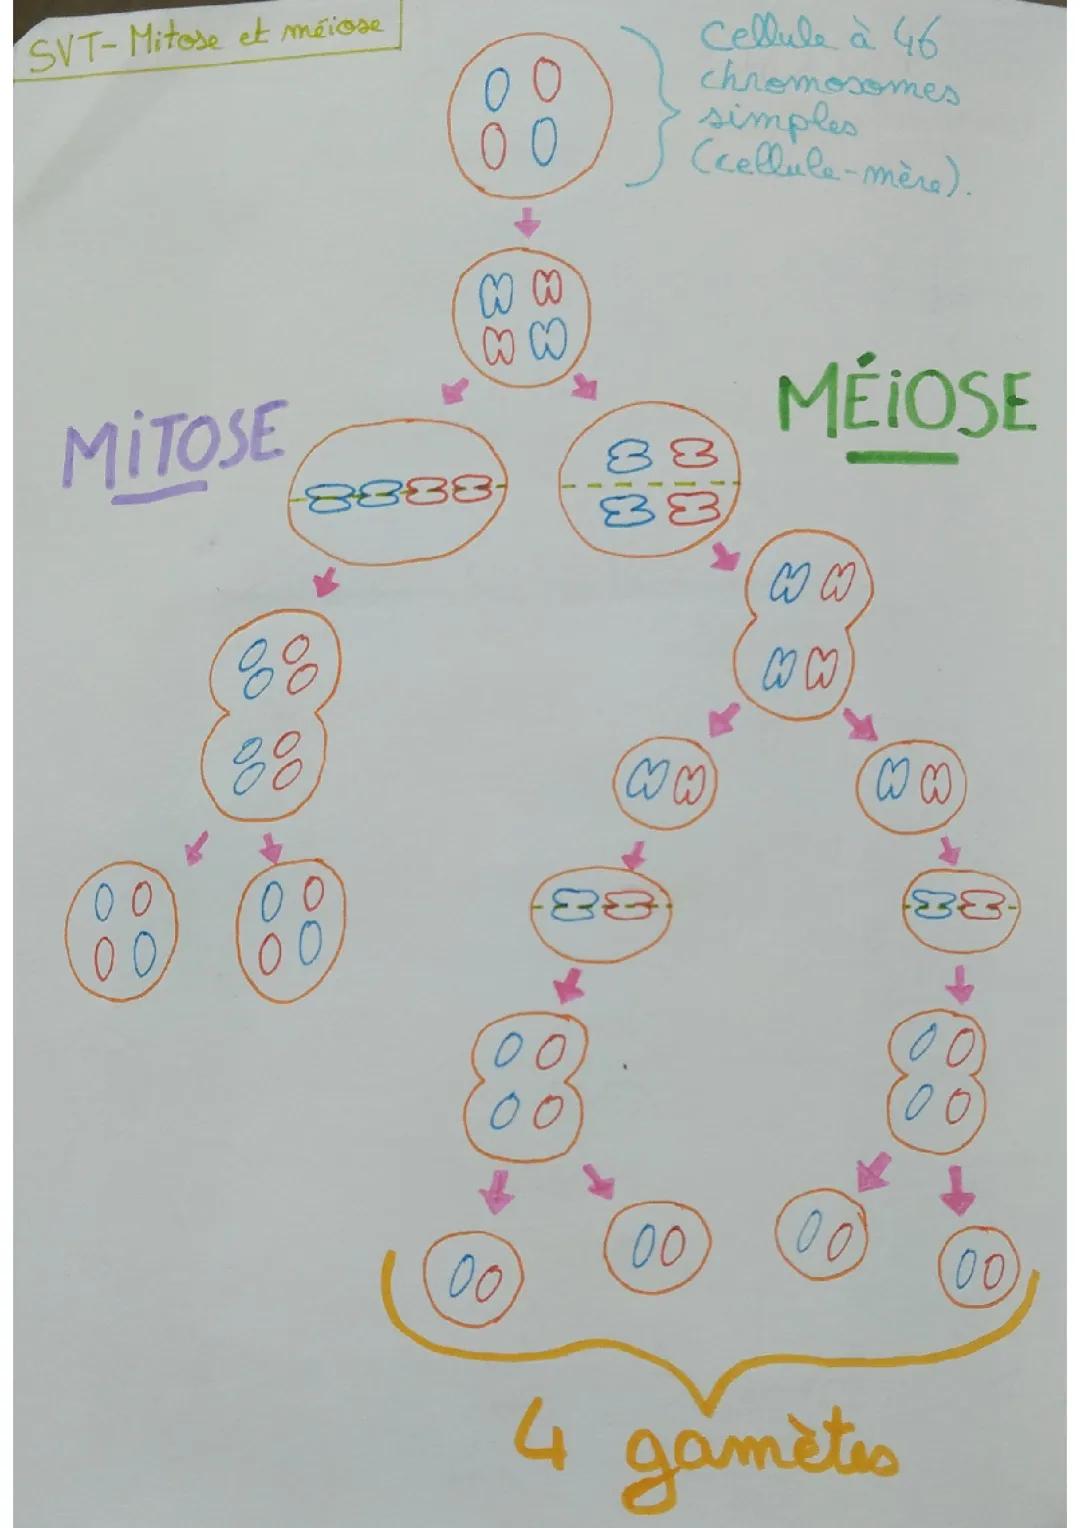 SVT- Mitose et méiose
Cellule à 46
chromosomes
simples
(cellule-mère).
MÉiOSE
MiTOSE
4 gamètes